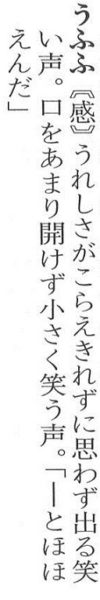 うふふ〘感〙うれしさがこらえきれずに思わず出る笑
い声。口をあまり開けず小さく笑う声。「―とほほ
えんだ」